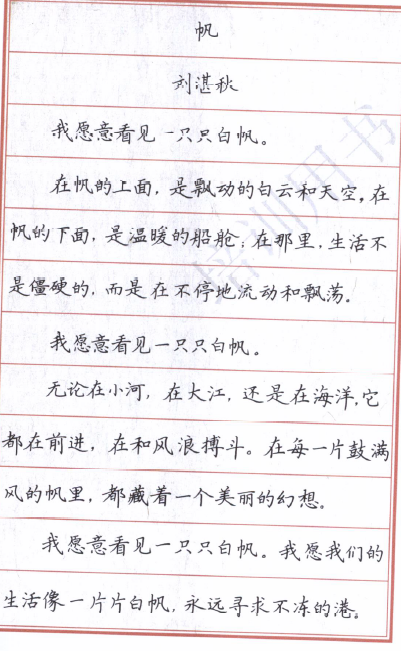 帆
刘湛秋
我愿意看见一只只白帆。
在帆的上面，是飘动的白云和天空，在
帆的下面，是温暖的船舱；在那里，生活不
是僵硬的，而是在不停地流动和飘荡。
我愿意看见一只只白帆。
无论在小河，在大江，还是在海洋，它
都在前进，在和风浪搏斗。在每一片鼓满
风的帆里，都藏着一个美丽的幻想。
我愿意看见一只只白帆。我愿我们的
生活像一片片白帆，永远寻求不冻的港。
培训用书